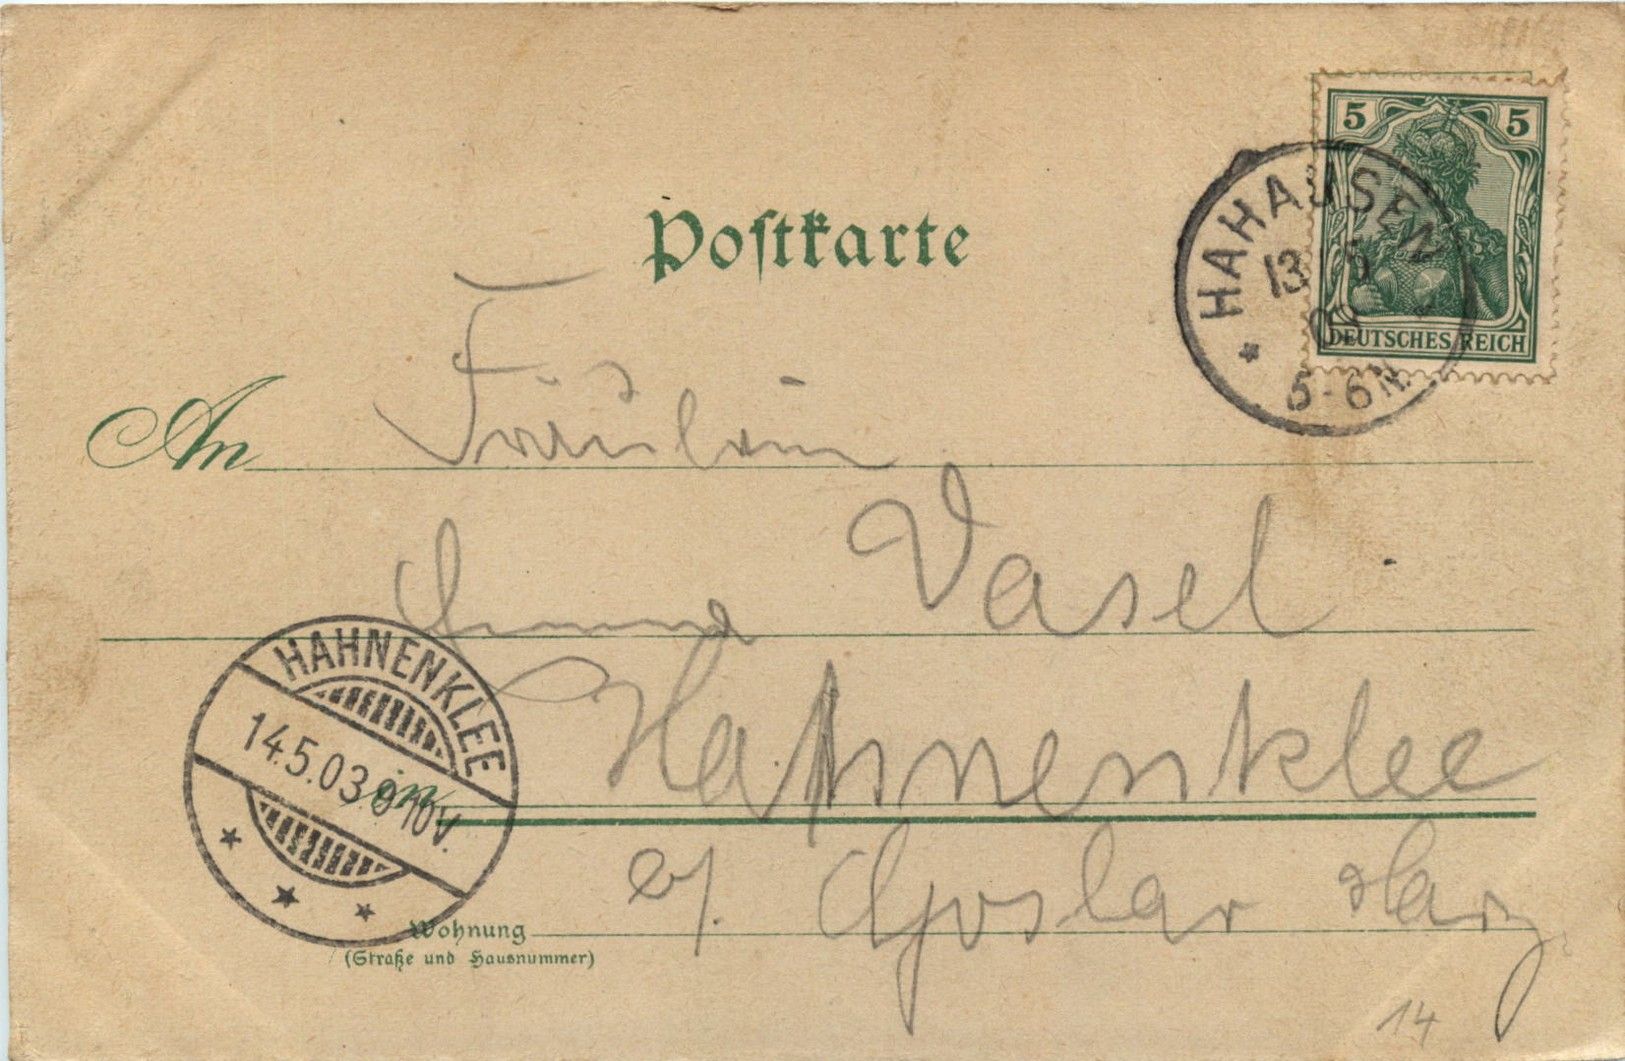 Postkarte
5 5
DEUTSCHES REICH
HAHAUSEN
13 5
03
5-6N.
An Fräulein
Anna Vasel
HAHNENKLEE
14.5.03 8-10V.
in Hahnenklee
b/. Goslar Harz
Wohnung
(Straße und Hausnummer)
14